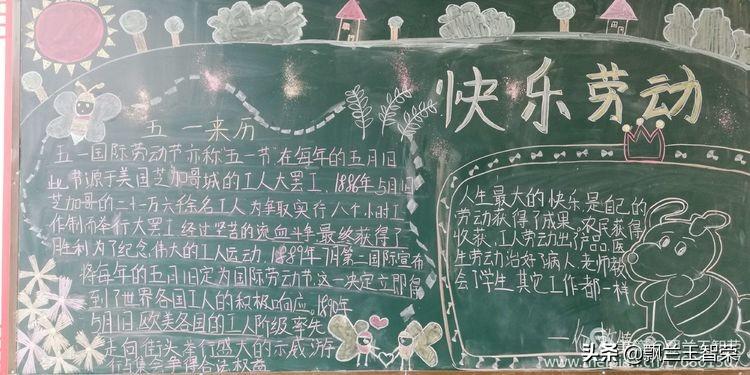 快乐劳动
五一来历
五一国际劳动节亦称五一节,在每年的五月1日
此节源于美国芝加哥城的工人大罢工,1886年5月1日
芝加哥的二十一万六千余名工人为争取实行八个小时工
作制而举行大罢工,经过坚苦的流血斗争,最终获得了
胜利,为了纪念,伟大的工人运动,1889年7月第二国际宣布
将每年的五月1日定为国际劳动节,这一决定立即得
到了世界各国工人的积极响应,1890年
5月1日,欧美各国的工人阶级率先
走向街头,举行盛大的示威游
行
人生最大的快乐是自己的
劳动获得了成果。农民获得
收获,工人劳动出了产品,医
生劳动治好了病人,老师教
会了学生,其它工作都一样
头条@飘兰王智荣